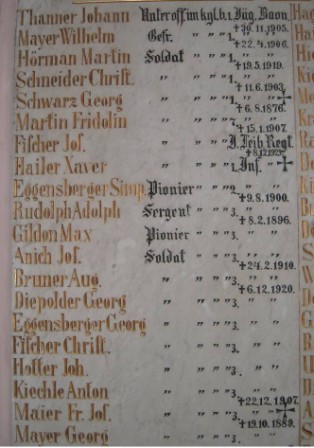 Thanner Johann Unteroff. im kgl. b. 1. Jäg. Baon.
✝30.11.1905.
Mayer Wilhelm Gefr. " " " 1. " "
✝22.4.1906.
Hörman Martin Soldat " " " 1. " "
✝19.5.1919.
Schneider Christ. " " " " 1. " "
✝11.6.1903.
Schwarz Georg " " " " 1. " "
✝6.8.1876.
Martin Fridolin " " " " " "
✝15.1.1907.
Fischer Jos. " " " " J. Leib. Regt.
✝8.12.1923.
Hailer Xaver " " " " 1. Inf. "
Eggensberger Simp. Pionier " " " 2. " "
✝9.8.1900.
Rudolph Adolph Sergent " " " 3. " "
✝8.2.1896.
Gildon Max Pionier " " " 3. " "
Anich Jos. Soldat " " " 3. " "
✝24.2.1910.
Bruner Aug. " " " " 3. " "
✝6.12.1920.
Diepolder Georg " " " " 3. " "
Eggensberger Georg " " " " 3. " "
Fischer Christ. " " " " 3. " "
Hoffer Joh. " " " " 3. " "
Kiechle Anton " " " " 3. " "
✝22.12.1907.
Maier Fr. Jos. " " " " 3. " "
✝19.10.1889.
Mayer Georg " " " " 3. " "